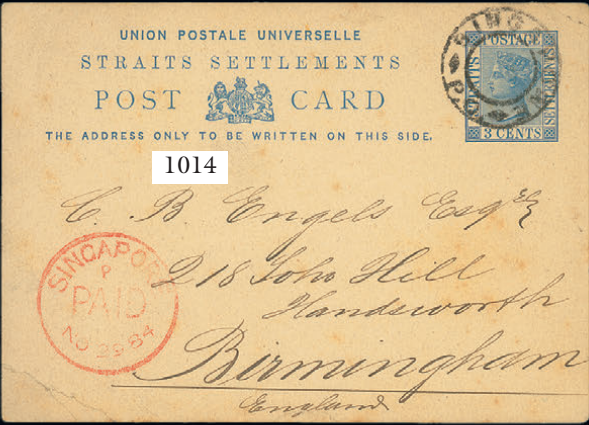 UNION POSTALE UNIVERSELLE
STRAITS SETTLEMENTS
POST CARD
THE ADDRESS ONLY TO BE WRITTEN ON THIS SIDE.
SING
POSTAGE
SETTLEMENTS
3 CENTS
1014
C. B Engels Esqre
218 Soho Hill
Handsworth
Birmingham
England
SINGAPORE
P
PAID
NO 29 84